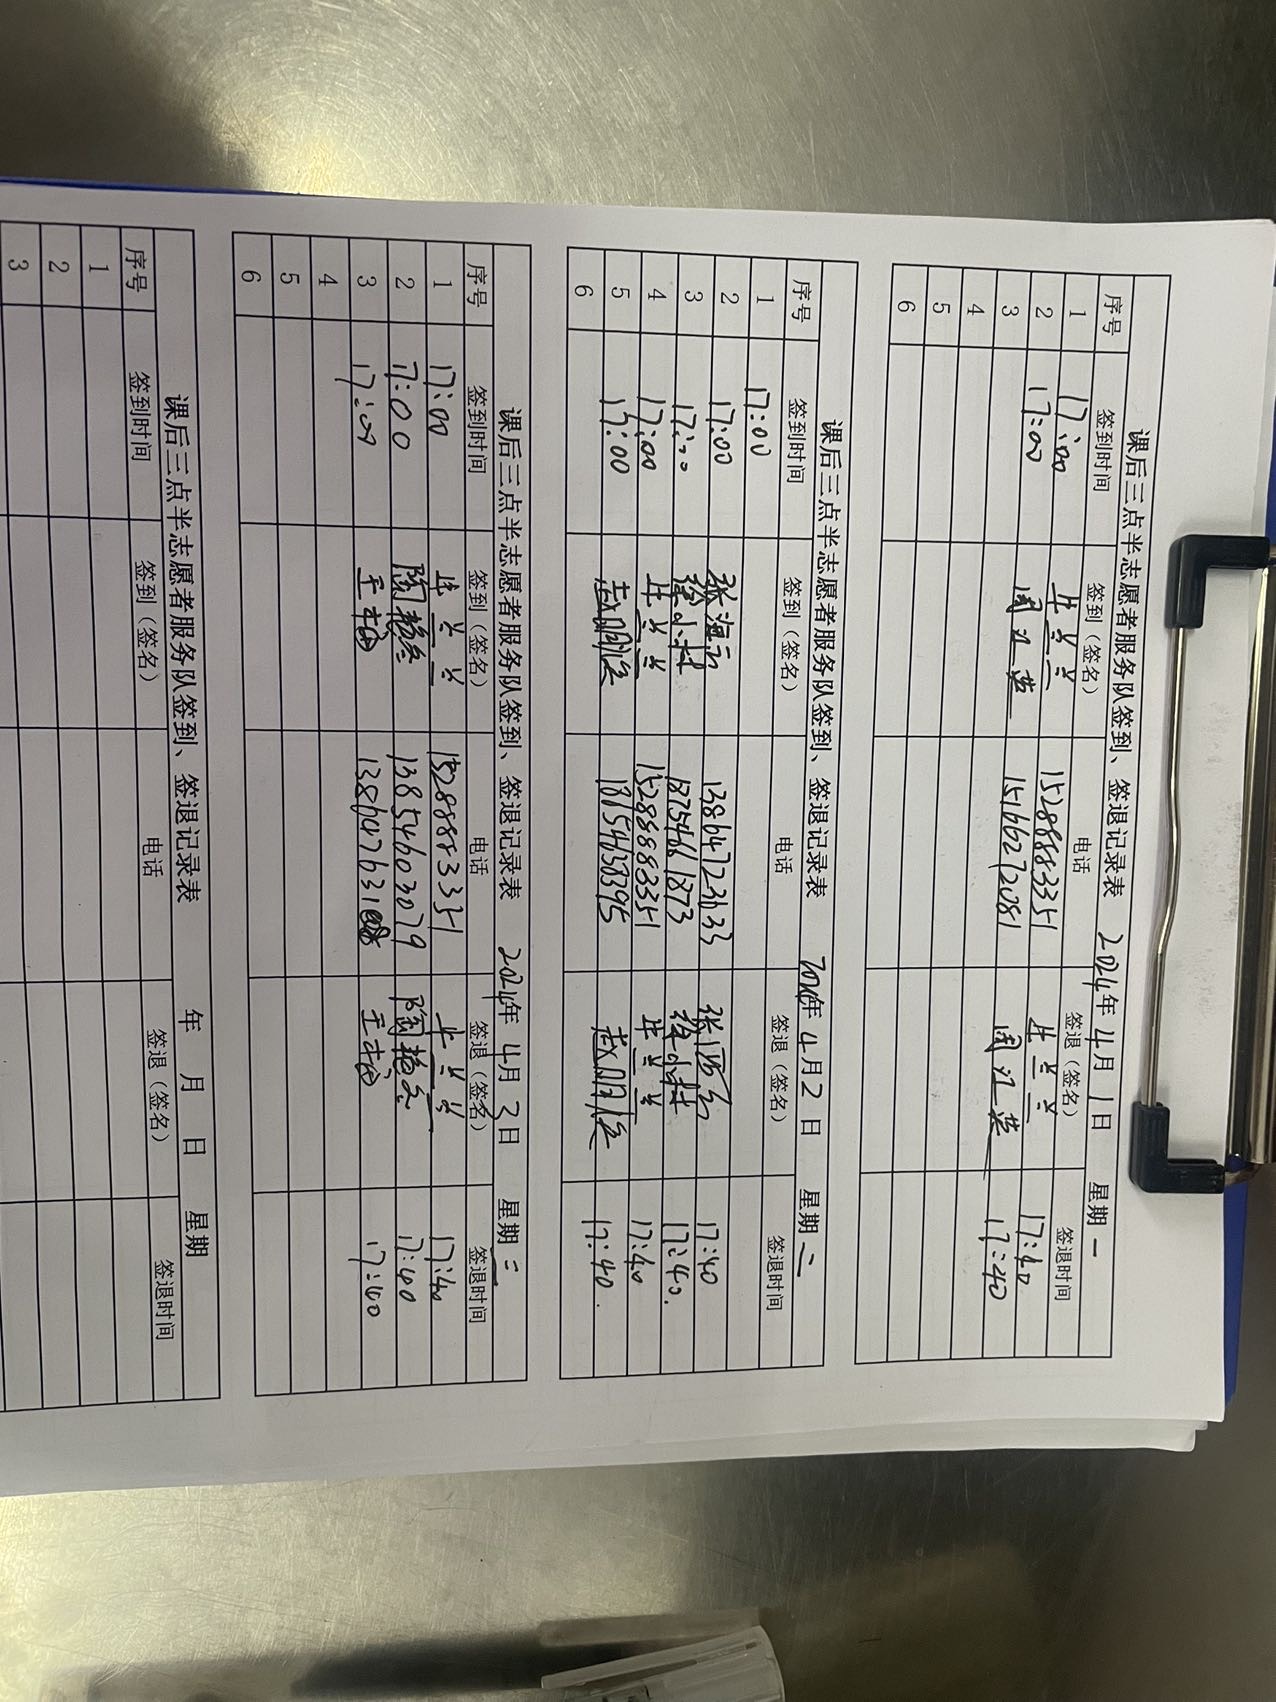 课后三点半志愿者服务队签到、签退记录表 2024年 4月 1日 星期 一
序号 签到时间 签到（签名） 电话 签退（签名） 签退时间
1 17:00 毕兰兰 15288883351 毕兰兰 17:40
2 17:00 周立英 15166272081 周立英 17:40
3
4
5
6
课后三点半志愿者服务队签到、签退记录表 2024年 4月 2日 星期 二
序号 签到时间 签到（签名） 电话 签退（签名） 签退时间
1 17:00
2 17:00 13864723633 17:40
3 17:00 徐小林 18754661873 徐小林 17:40.
4 17:00 毕兰兰 15288883351 毕兰兰 17:40
5 17:00 18154638395 17:40.
6
课后三点半志愿者服务队签到、签退记录表 2024年 4月 3日 星期 三
序号 签到时间 签到（签名） 电话 签退（签名） 签退时间
1 17:00 毕兰兰 15288883351 毕兰兰 17:40
2 17:00 13854603079 17:40
3 17:00 王楠 王楠 17:40
4
5
6
课后三点半志愿者服务队签到、签退记录表 年 月 日 星期
序号 签到时间 签到（签名） 电话 签退（签名） 签退时间
1
2
3